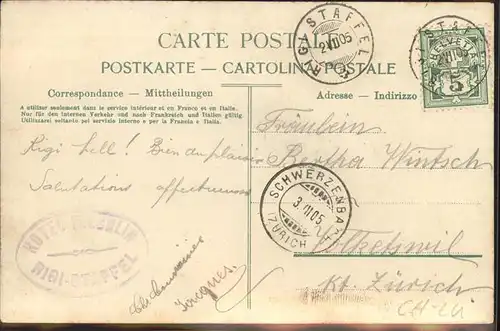 CARTE POSTALE
POSTKARTE — CARTOLINA POSTALE
Correspondance - Mittheilungen
Adresse - Indirizzo
A utiliser seulement dans le service intérieur et en France et en Italie.
Nur für den internen Verkehr und nach Frankreich und Italien gültig.
Utilizzarsi soltanto pel servizio interno e per la Francia e l'Italia.
RIGI STAFFEL
2 VII 05
HELVETIA
5
Rigi hell! Bien du plaisir
Salutations affectueuses
Jacques.
Fräulein
Bertha Wintsch
Volketswil
Kt. Zürich
SCHWERZENBACH
3. VII 05
(ZÜRICH)
HOTEL
RIGI-STAFFEL
CH-ZU